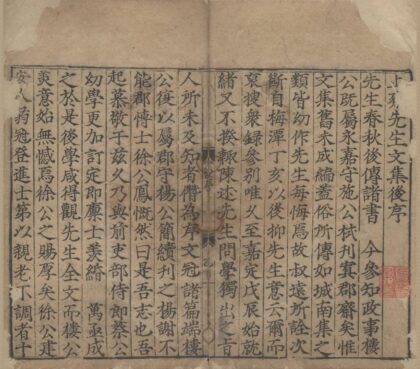 先生文集後序
先生春秋後傳諸書 今參知政事樓
公既屬永嘉守施公栻刋寘郡齋矣惟
文集舊未成編蓋俗所傳如城南集之
類皆幼作先生每悔焉故叔遠所詮次
斷自梅潭丁亥以後抑先生意云爾而
裒搜衆録參別唯久至嘉定戊辰始就
緒又不揆輙陳述先生問學獨出之旨
人所未及知者僣為序文冠諸篇端樓
公復以屬郡守楊公簡續刋之楊謝不
能郡博士徐公鳳慨然曰是吾志也吾
起慕敬于兹久乃與前吏部侍郎蔡公
幼學更加訂定即廪士羨緡 萬亟成
之於是後學咸得觀先生全文而樓公
羙意始無憾焉徐公之賜厚矣徐公建
安人蚤冠登進士第以親老下調者十